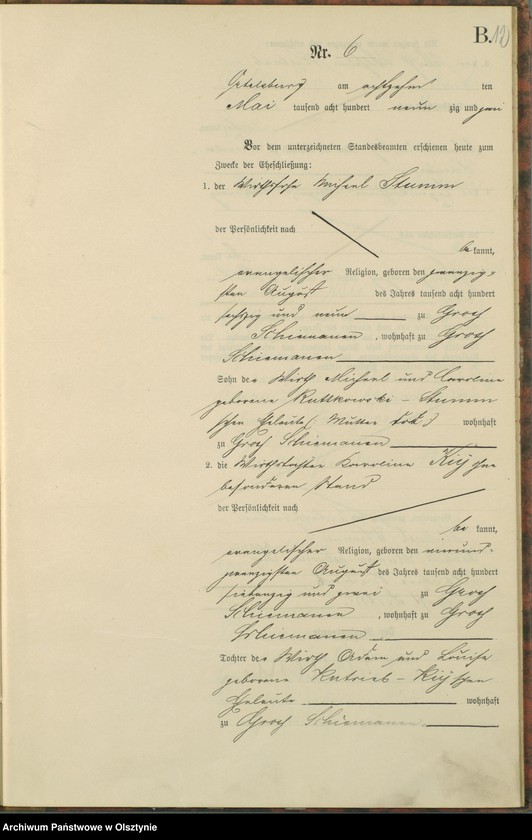 B. 12
Nr. 6
Ortelsburg am achtzehnten
Mai tausend acht hundert neun zig und zwei
Vor dem unterzeichneten Standesbeamten erschienen heute zum
Zwecke der Eheschließung:
1. der Wirthssohn Michael Stumm
der Persönlichkeit nach
be kannt,
evangelischer Religion, geboren den zwanzig-
sten August des Jahres tausend acht hundert
sechzig und neun zu Groß
Schiemanen, wohnhaft zu Groß
Schiemanen
Sohn des Wirth Michael und Caroline
geborene Ruttkowski - Stumm
schen Eheleute (Mutter tot) wohnhaft
zu Groß Schiemanen
2. die Wirthstochter Karoline Kij ohne
besonderen Stand
der Persönlichkeit nach
be kannt,
evangelischer Religion, geboren den vierund-
zwanzigsten August des Jahres tausend acht hundert
siebenzig und zwei zu Groß
Schiemanen, wohnhaft zu Groß
Schiemanen
Tochter des Wirth Adam und Louise
geborene - Kij schen
Eheleute wohnhaft
zu Groß Schiemanen
Archiwum Państwowe w Olsztynie